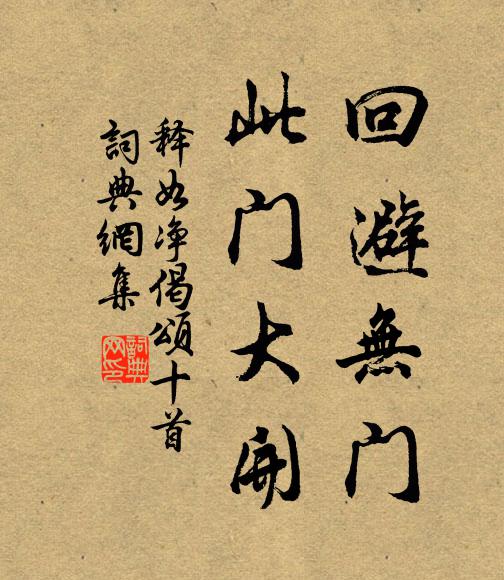 回避無门
此门大開
释如净偈頌十首
詞典網集
詞典
网印